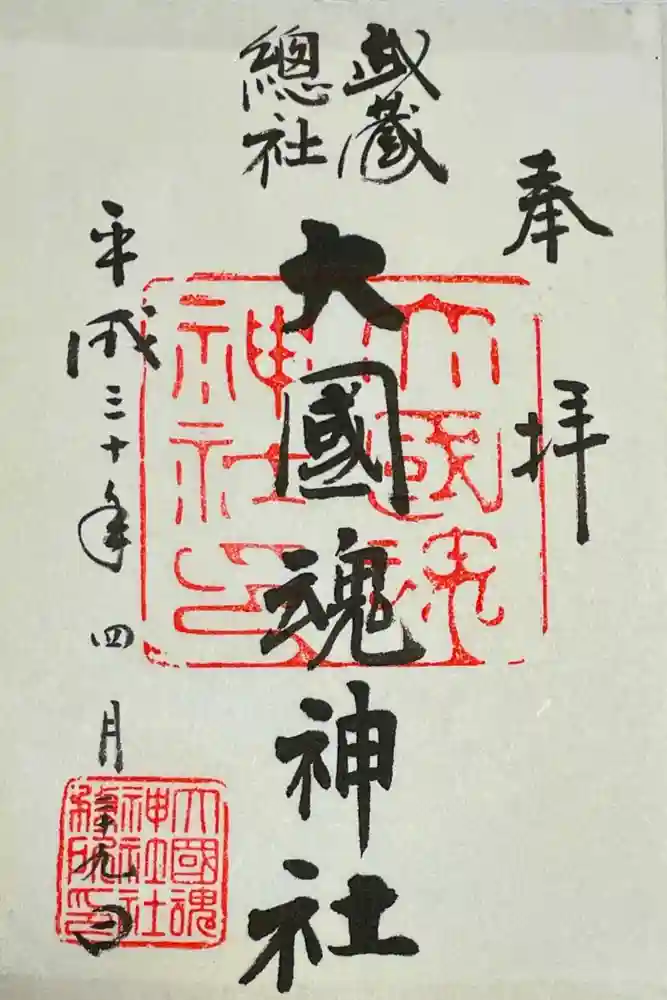 奉拝
武蔵
總社
大國魂神社
平成三十年四月二十九日
大國魂
神社印
大國魂
神社社
務所印